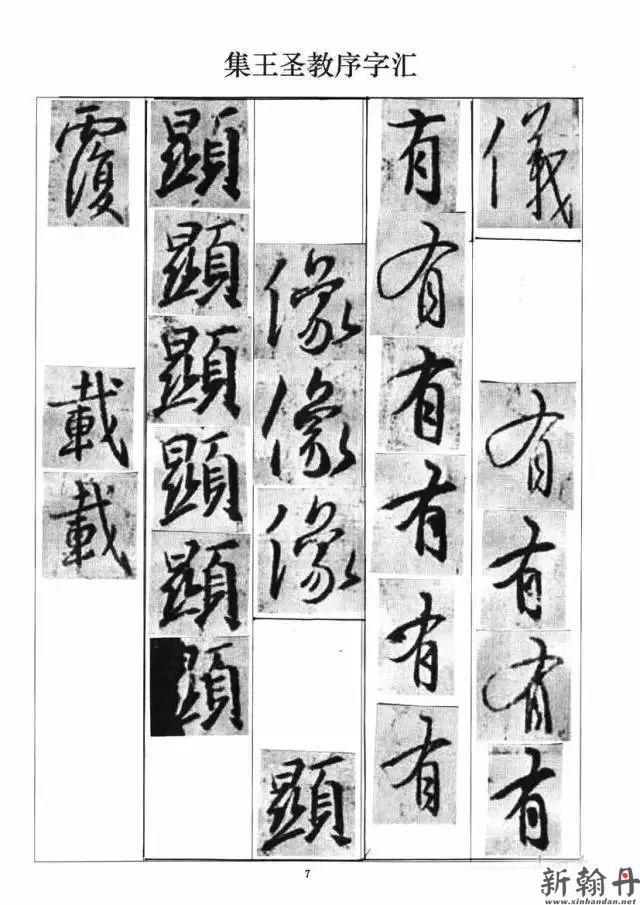 集王圣教序字汇
儀
有
有
有
有
有
有
有
有
有
有
像
像
像
顯
顯
顯
顯
顯
顯
顯
覆
載
載
7
新翰丹
www.xinhandan.net